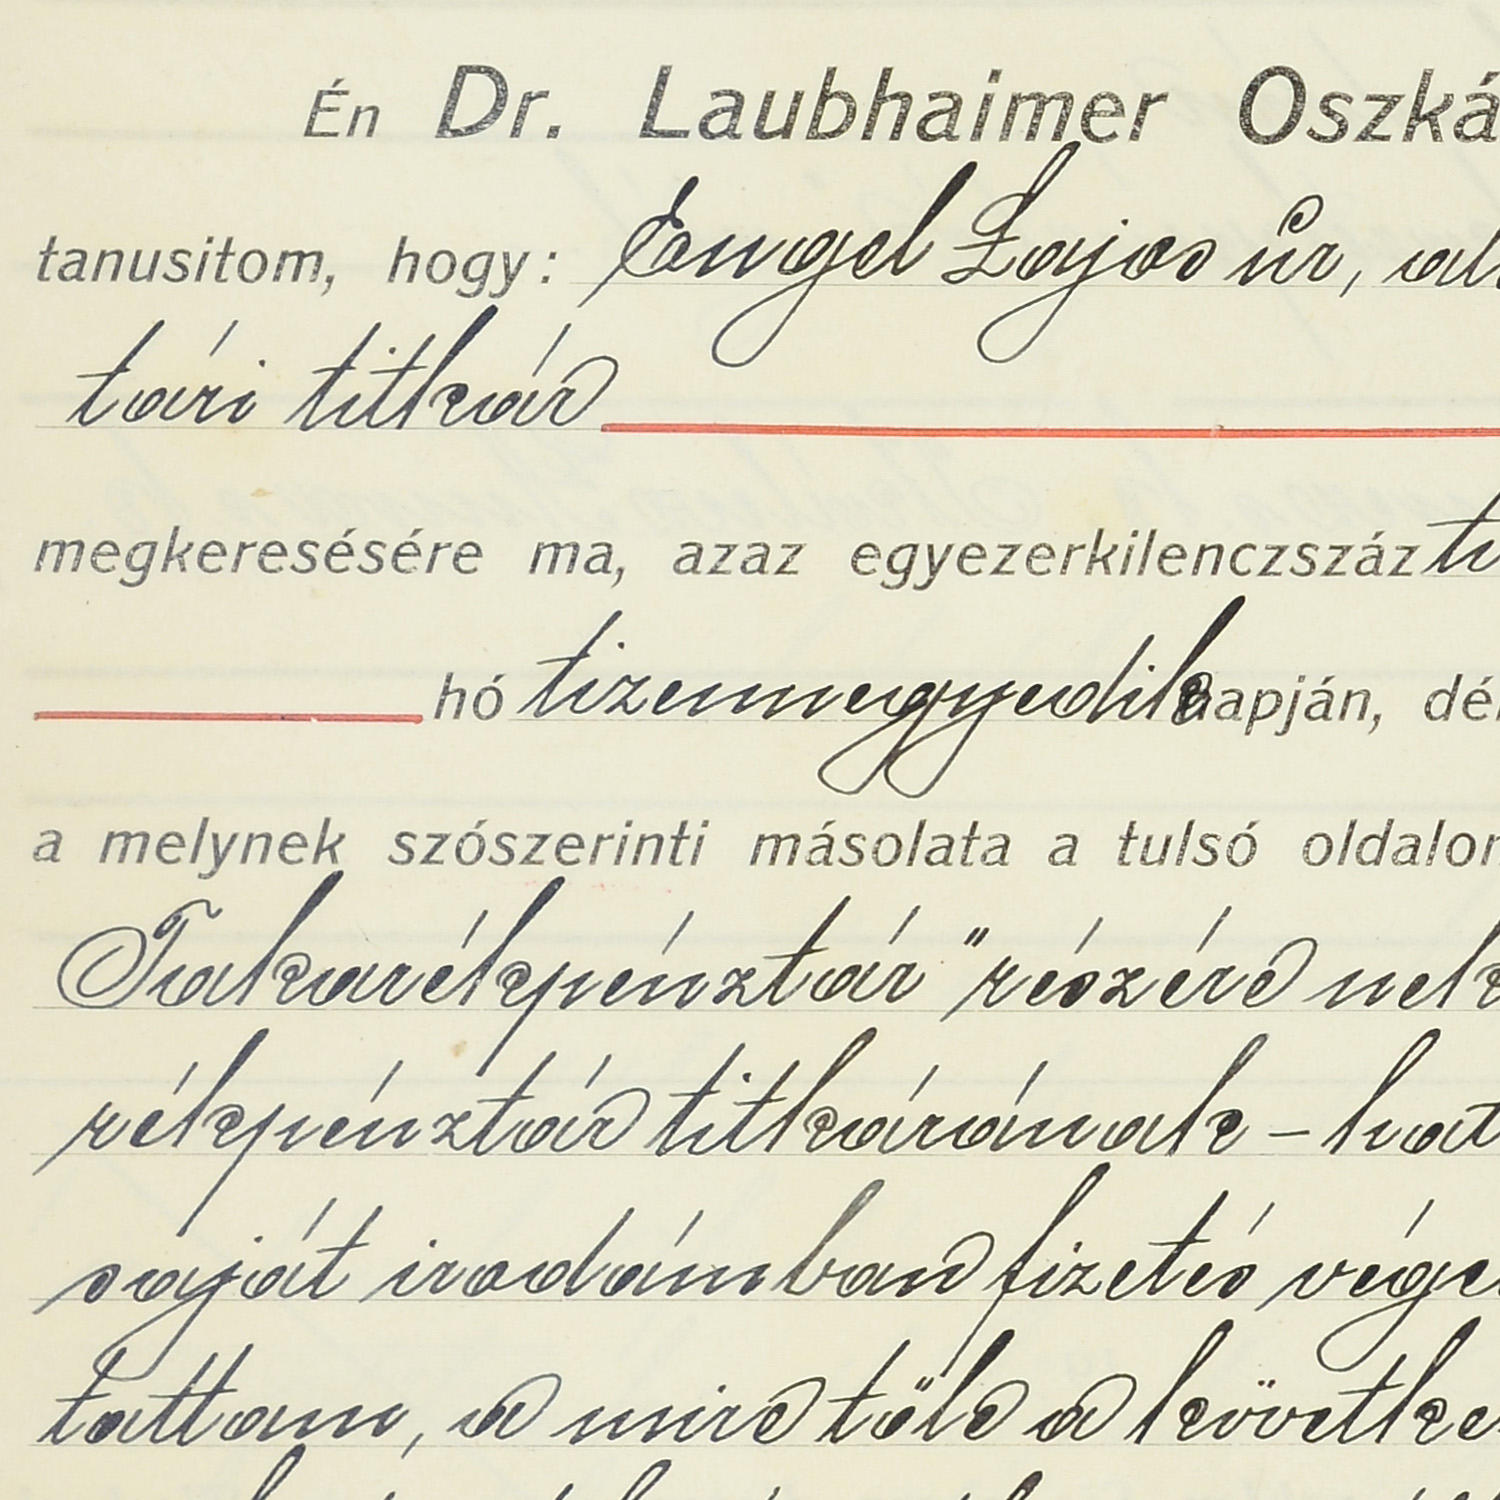 Én Dr. Laubhaimer Oszká
tanusitom, hogy: Engel Lajos úr, al
tári titkár
megkeresésére ma, azaz egyezerkilenczszáz ti
hó tizennegyedik napján, dél
a melynek szószerinti másolata a tulsó oldalon
Takarékpénztár" részére nek
rékpénztár titkárának – hat
saját irodámban fizetés vége
tattam, a mire tőle a követke